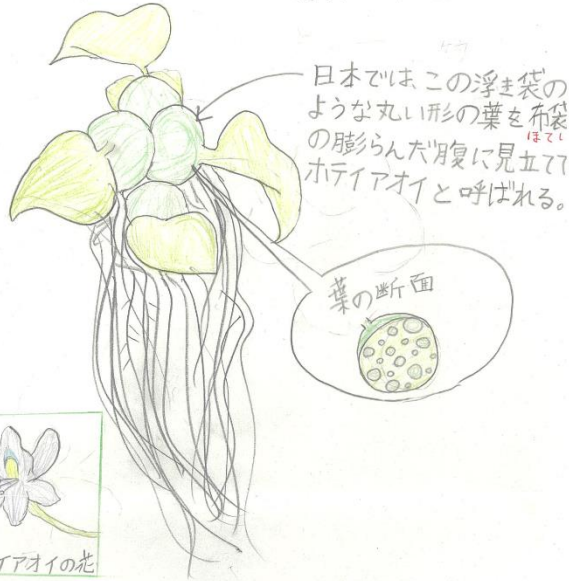 日本では、この浮き袋の
ような丸い形の葉を布袋
ほてい
の膨らんだ腹に見立てて
ホテイアオイと呼ばれる。
葉の断面
イアオイの花